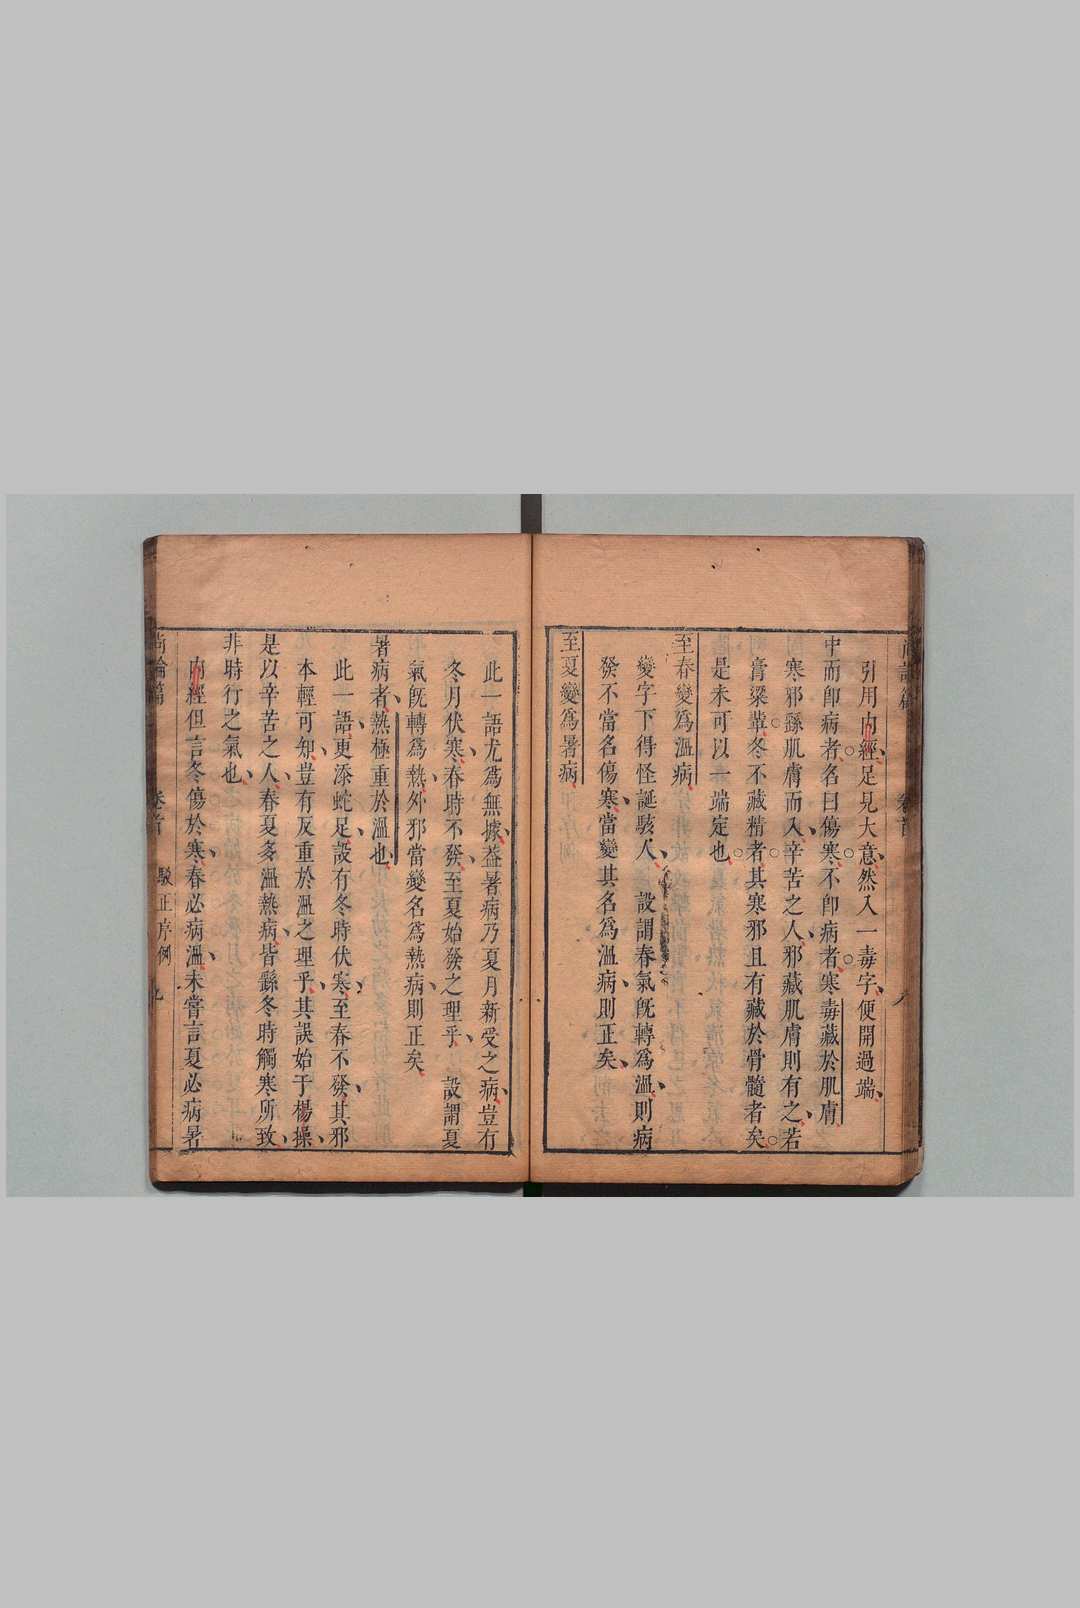 引用內經足見大意然入一毒字便開過端
中而卽病者名曰傷寒不卽病者寒毒藏於肌膚
寒邪繇肌膚而入辛苦之人邪藏肌膚則有之若
膏粱輩冬不藏精者其寒邪且有藏於骨髓者矣
是未可以一端定也
至春變爲溫病
變字下得怪誕駭人設謂春氣旣轉爲溫則病
發不當名傷寒當變其名爲溫病則正矣
至夏變爲暑病
此一語尤爲無據蓋暑病乃夏月新受之病豈有
冬月伏寒春時不發至夏始發之理乎設謂夏
氣旣轉爲熱外邪當變名爲熱病則正矣
暑病者熱極重於溫也
此一語更添蛇足設有冬時伏寒至春不發其邪
本輕可知豈有反重於溫之理乎其誤始于楊操
是以辛苦之人春夏多溫熱病皆繇冬時觸寒所致
非時行之氣也
內經但言冬傷於寒春必病溫未嘗言夏必病暑
尚論篇 卷首 駁正序例 九